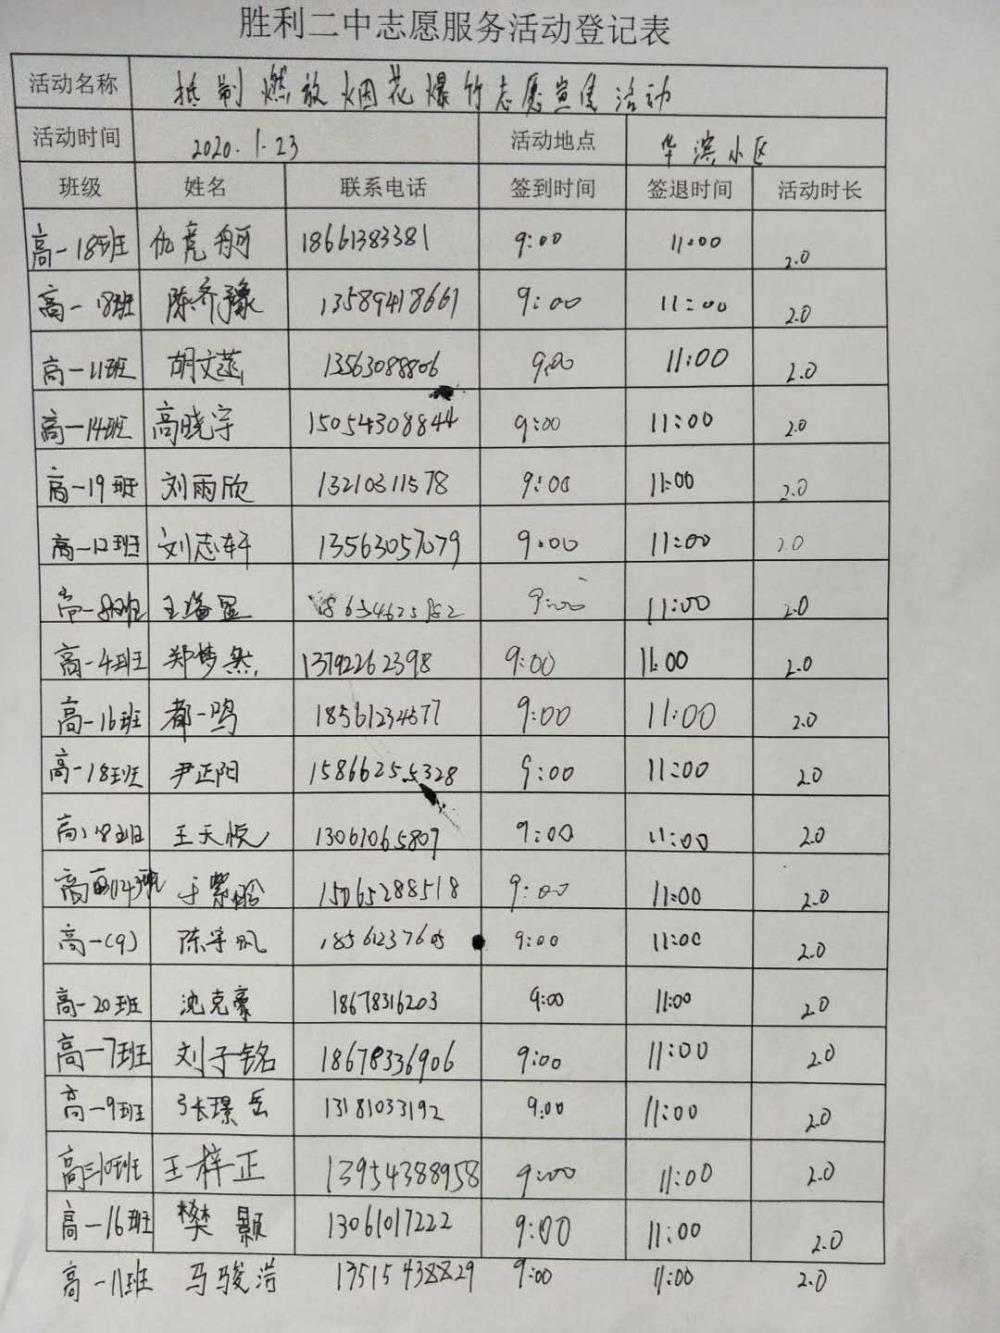 胜利二中志愿服务活动登记表
活动名称 抵制燃放烟花爆竹志愿宣传活动
活动时间 2020.1.23 活动地点 华滨小区
班级 姓名 联系电话 签到时间 签退时间 活动时长
高一18班 仇竞舸 18661383381 9:00 11:00 2.0
高一18班 陈齐豫 13589418661 9:00 11:00 2.0
高一11班 胡文蕊 13563088806 9:00 11:00 2.0
高一14班 高晓宇 15054308844 9:00 11:00 2.0
高一19班 刘雨欣 13210311578 9:00 11:00 2.0
高一12班 刘志轩 13563057079 9:00 11:00 2.0
高一8班 王 18654625952 9:00 11:00 2.0
高一4班 郑梦然 13792262398 9:00 11:00 2.0
高一16班 都一鸣 18561234577 9:00 11:00 2.0
高一18班 尹正阳 15866255328 9:00 11:00 2.0
高一18班 王天悦 13061065807 9:00 11:00 2.0
高 于紫晗 15065288518 9:00 11:00 2.0
高一(9) 陈宇凤 9:00 11:00 2.0
高一20班 沈克豪 18678316203 9:00 11:00 2.0
高一7班 刘子铭 18678336906 9:00 11:00 2.0
高一9班 张璟岳 13181033192 9:00 11:00 2.0
高 10班 王梓正 13954388958 9:00 11:00 2.0
高一16班 樊颢 13061017222 9:00 11:00 2.0
高一11班 马骏涝 13515438829 9:00 11:00 2.0